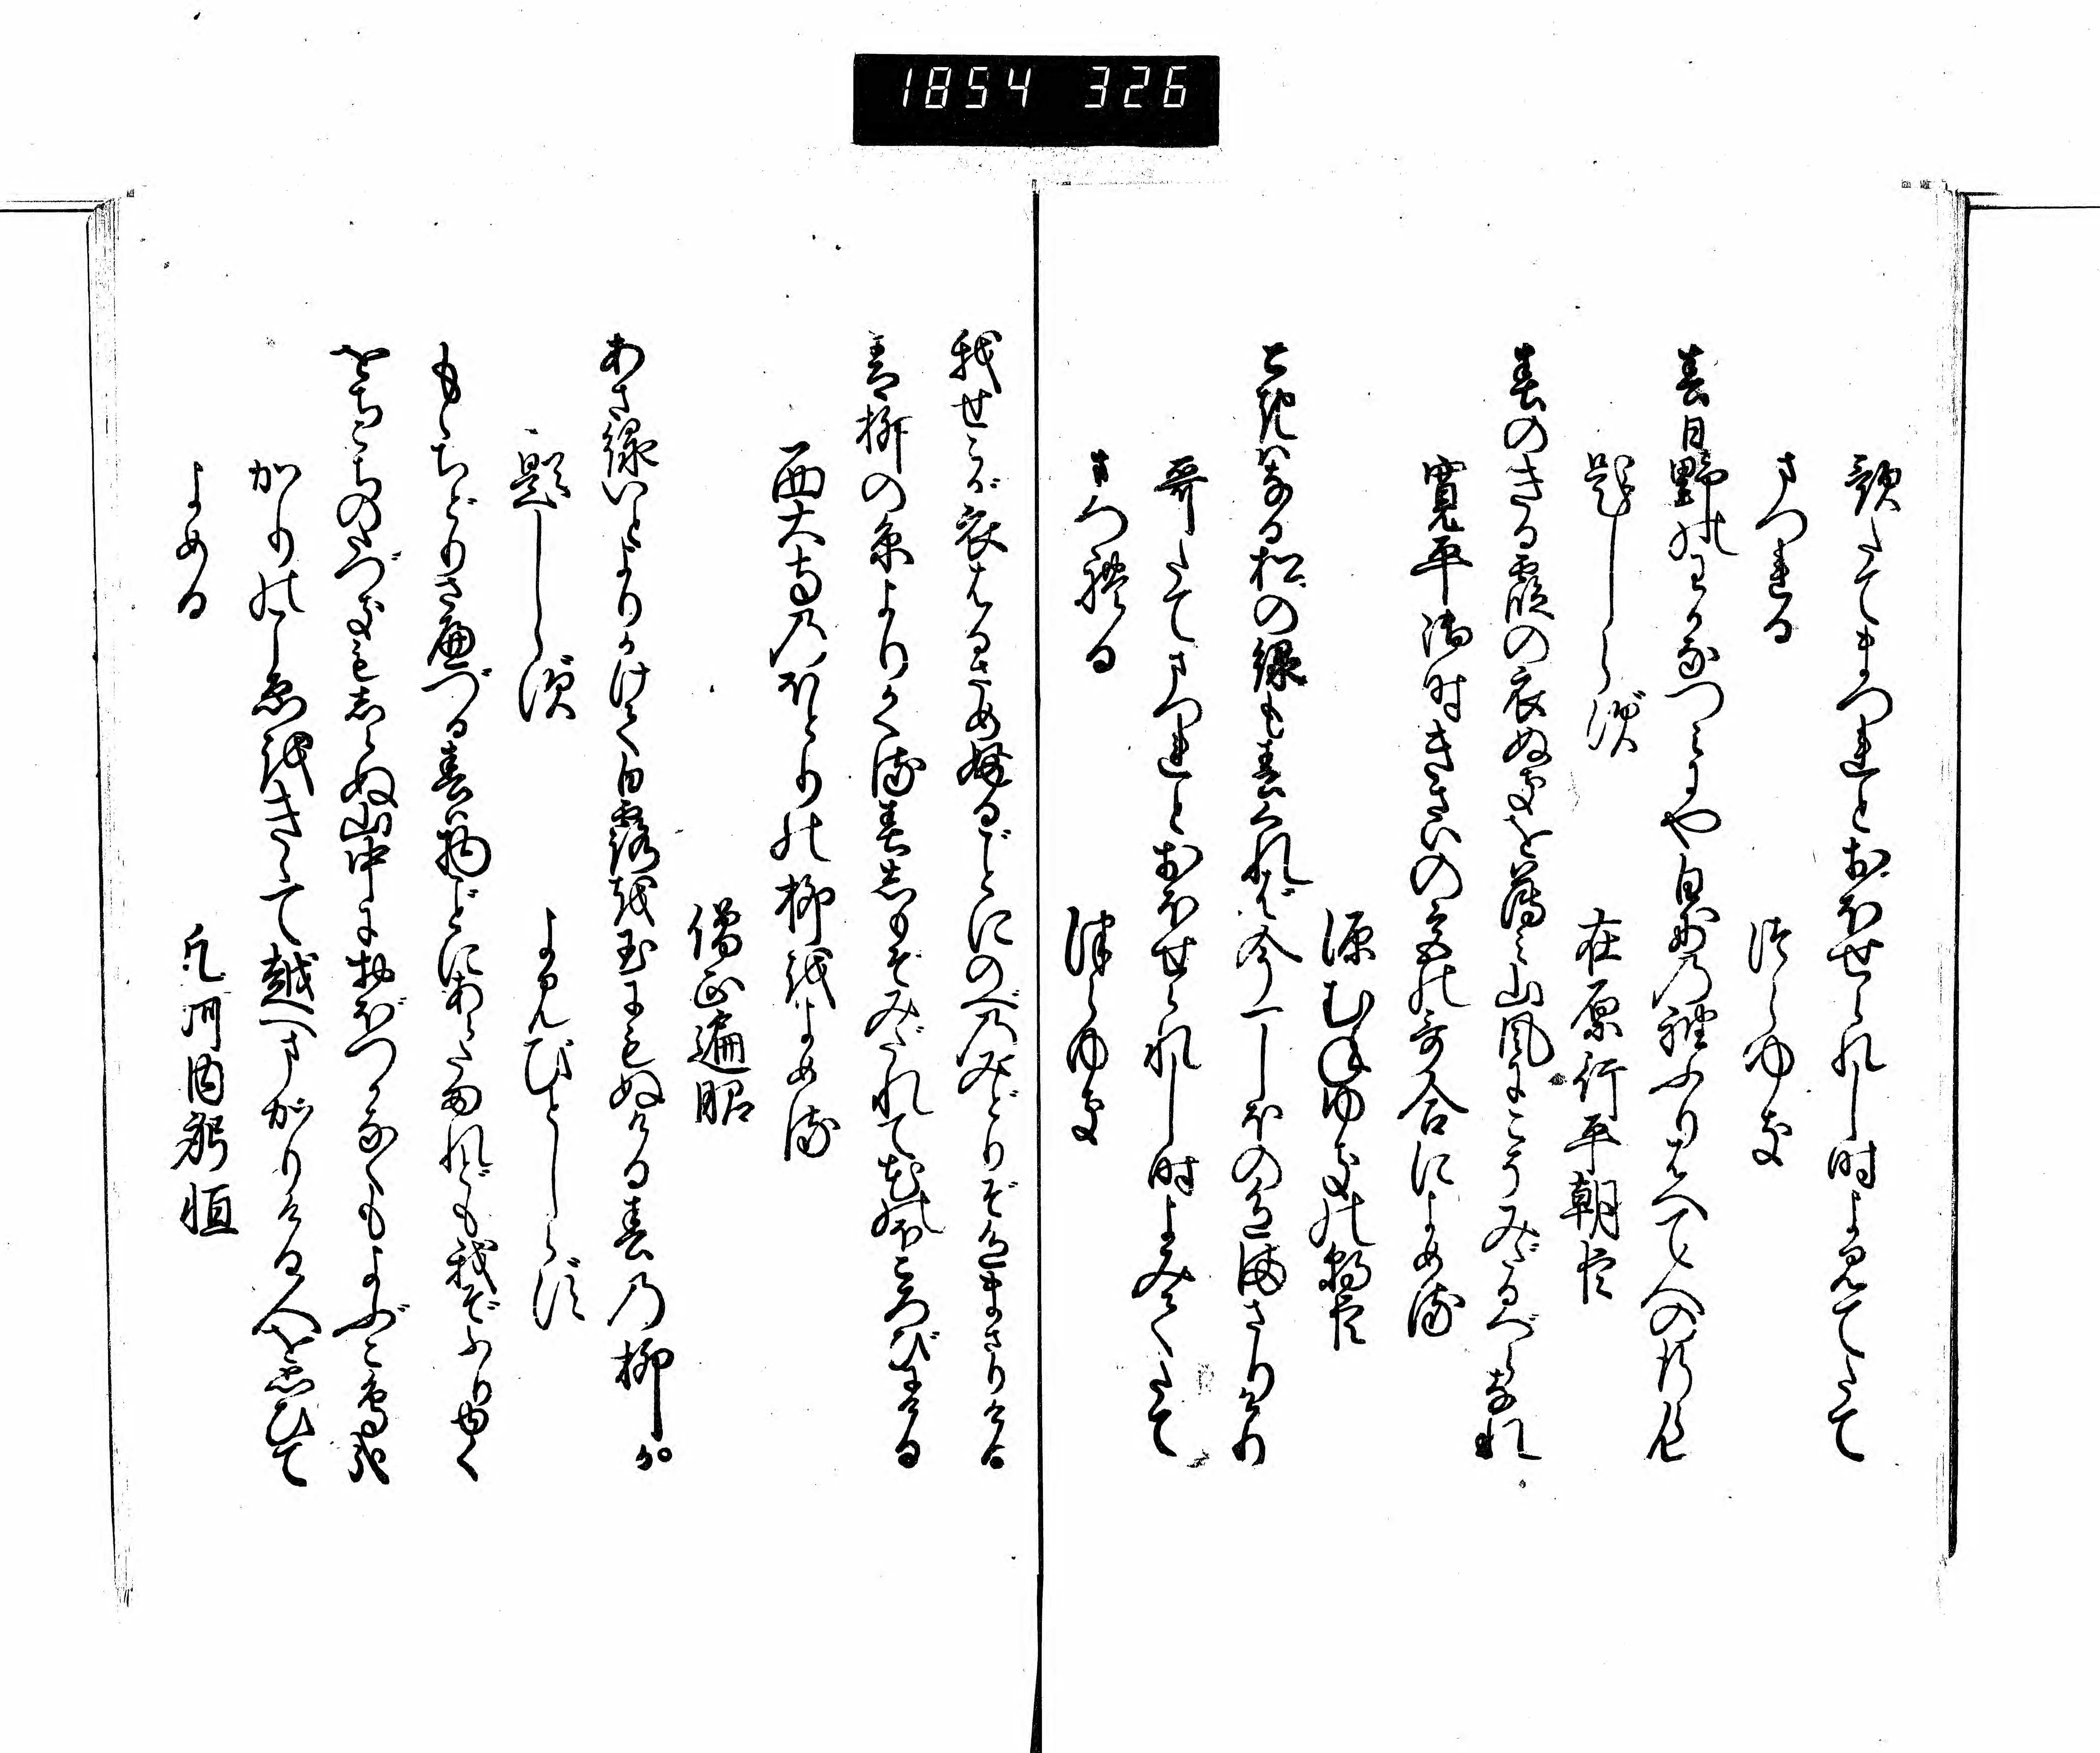 1854 326
歌たてまつれとおほせられし時よみてたて
まつれる
つらゆき
春日野のわかなつみにや白妙の袖ふりはへて人の行らん
題しらず
在原行平朝臣
春のきる霞の衣ぬきを薄み山風にこそみだるべらなれ
寛平御時きさいの宮の哥合によめる
源むねゆきの朝臣
ときはなる松の緑も春くれば今一しほの色まさりけり
哥たてまつれとおほせられし時よみてたて
まつれる
つらゆき
我せこが衣はるさめふるごとにのべのみどりぞ色まさりける
青柳の糸よりかくる春しもぞみだれて花のほころびにける
西大寺のほとりの柳をよめる
僧正遍昭
あさ緑いとよりかけて白露を玉にもぬける春の柳か
題しらず
よみびとしらず
もゝちどりさへづる春は物ごとにあらたまれども我ぞふりゆく
をちこちのたづきもしらぬ山中におぼつかなくもよぶこ鳥哉
かりのこゑをきゝて越へまかりける人を思ひて
よめる
凡河内躬恒